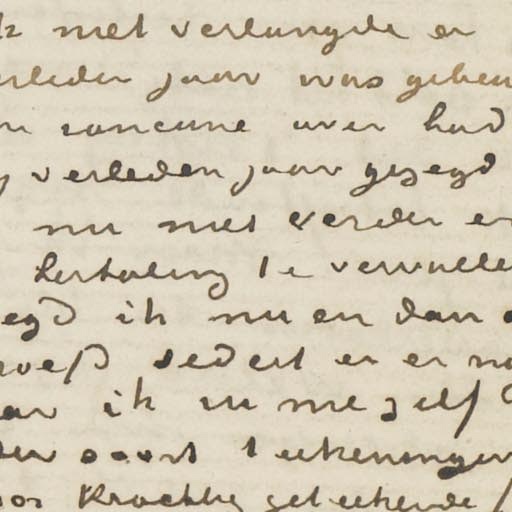 ik niet verlangde er
verleden jaar was gebeu
en rancune over had
verleden jaar gezegd
nu niet verder er
herhaling te vervalle
egd ik nu en dan
sedert en er
ar ik in me zelf
der soort teekeningen
oor krachtig geteekende